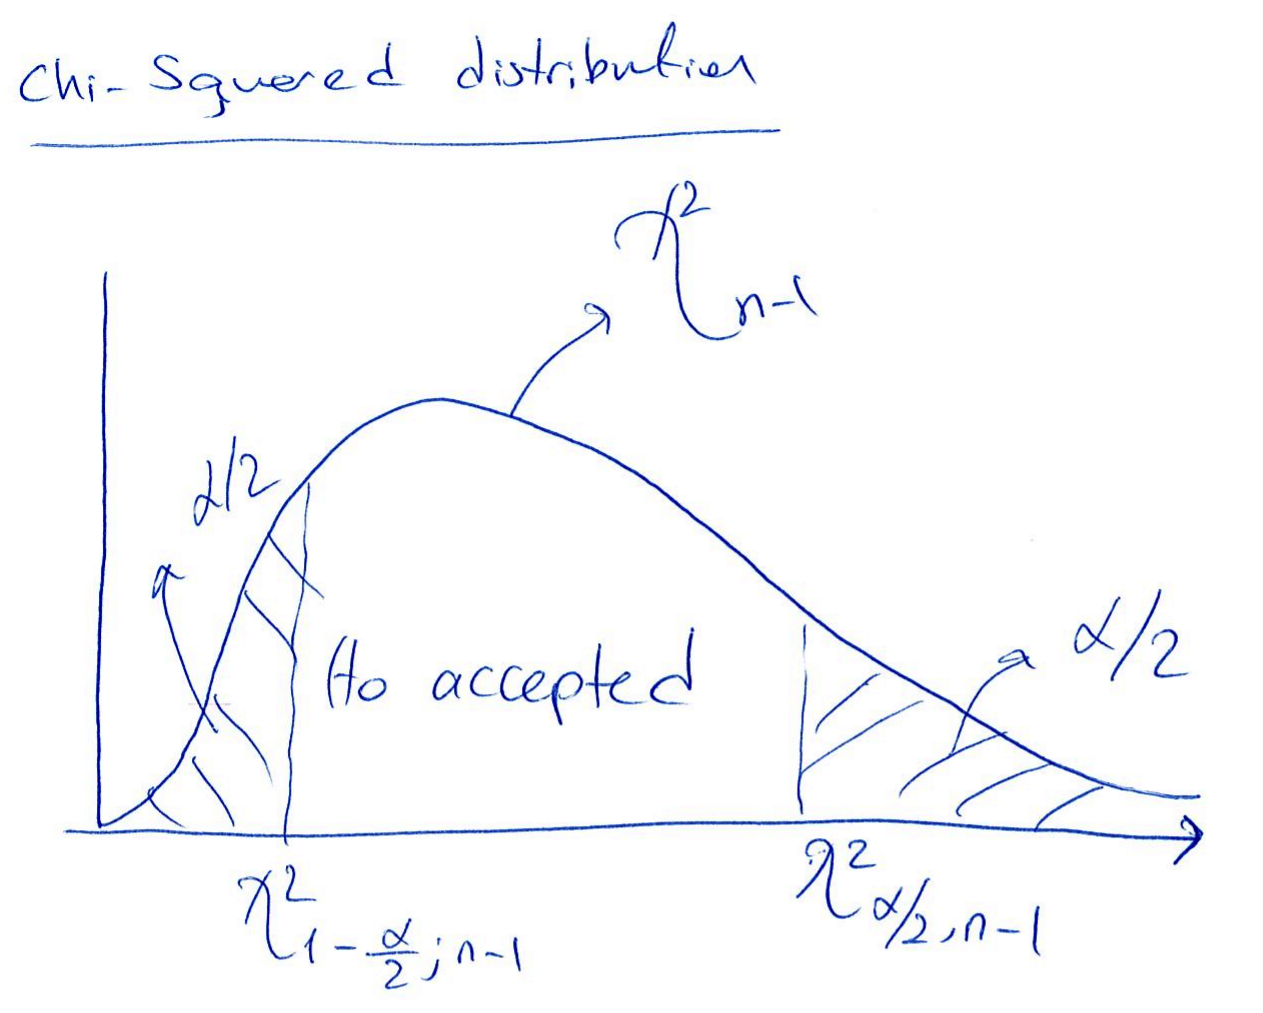 Chi-Squared distribution
χ²ₙ₋₁
α/2
H₀ accepted
α/2
χ²_{1-α/2; n-1}
χ²_{α/2, n-1}